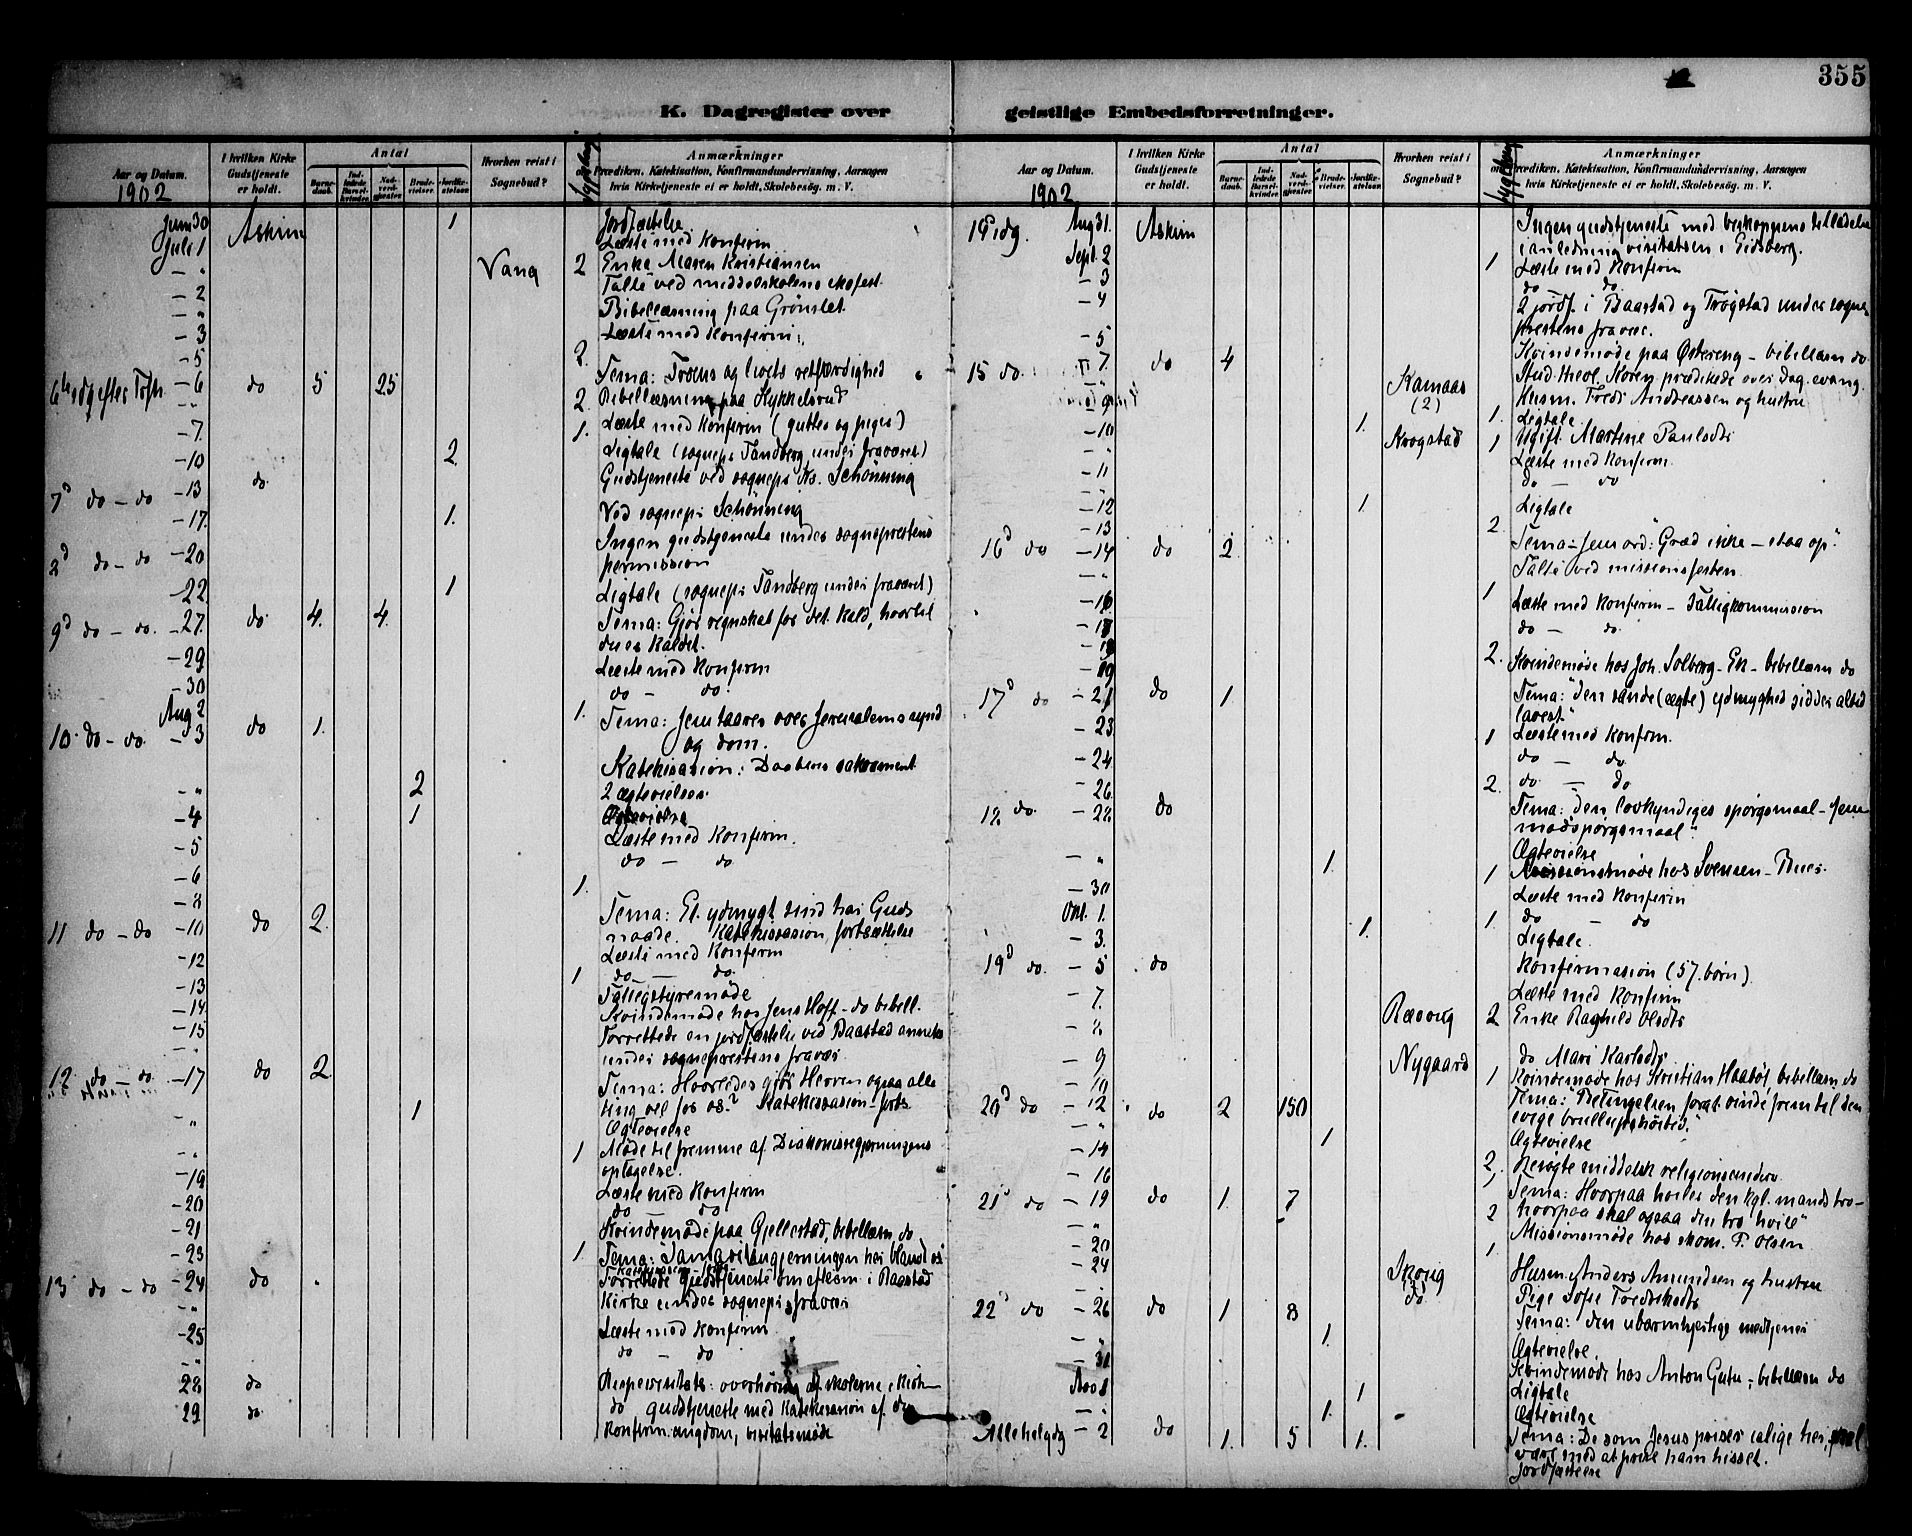 355
K. Dagregister over
geistlige Embedsforretninger.
Aar og Datum.
1902
I hvilken Kirke
Gudstjeneste
er holdt.
Antal
Barne-
daab.
Ind-
ledede
Barsel-
kvinder.
Nad-
verd-
gjester.
Brude-
vielser.
Jordfæ-
stelser.
Hvorhen reist i
Sognebud?
Sygebesøg
Anmærkninger
om Prædiken, Katekisation, Konfirmandundervisning, Aarsagen
hvis Kirketjeneste ei er holdt, Skolebesøg. m. V.
Juni 30 Askim 1 Jordfæstelse
Juli 1 Læste med Konfirm
- " Vang 2 Enke Maren Kristiansen
- 2 Talte ved middelskolens skofest.
- " Bibellæsning paa Grønslet
- 3 Læste med Konfirm:
- 5 2
6te sdg efter Tofn. - 6 do 5 25 Tema: Troens og livets retfærdighed
- " 2. Bibellæsning paa Hykkelsrud
- 7 1. Læste med Konfirm (gutter og piger)
- 10 2 Ligtale (sognepr. Tandberg under fraværet)
7d do - do - 13 do Gudstjeneste ved sognepr. Schønning
- 17 1. Ved sognepr. Schønning
do - do - 20 Ingen gudstjeneste under sogneprestens
permission
- 22 1 Ligtale (sognepr. Tandberg under fraværet)
9d do - do. - 27. do 4. 4. Tema: Gjør regnskab for det kald, hvortil
du er kaldet.
- 29 Læste med Konfirm
- 30 do - do.
Aug 2 1.
10. do - do. - 3 do 1. Tema: Jesu taarer over Jerusalems synd
og dom.
Katekisasion: Daabens sakrament
- " 2 2 Ægtevielser.
- 4 1 Ægtevielse
- 5 Læste med Konfirm.
- 6 do - do
- 8 1.
11 do - do - 10 do 2. Tema: Et ydmygt sind har Guds
naade. Katekisasion, fortsættelse
- 12 Læste med Konfirm
- 13 1 do - do.
- 14 Tilligstyremøde
- 15 Kvindemøde hos Jens Hoff - do bibell.
- " Forrettede en jordfæstelse ved Baastad anneks
under sogneprestens fravær.
12. do - do - 17 do 2 Tema: Hvorledes gjør Herren ogsaa alle
ting vel for os? Katekisasion - forts
- " 1 Ægtevielse
- " 1 Møde til fremme af Diakonissegjerningens
optagelse.
- 19 Læste med Konfirm
- 20 do - do
- 21 Kvindemøde paa Gjellestad, bibellæsn do
- 23 1.
13 do - do - 24 do Tema: Samaritangjerningen her blandt os
- " Forrettede Gudstjeneste om efterm. i Baastad
Kirke under sognepr. fravær
- 25 Læste med Konfirm
- " do - do
28 do Bispevisitats: overhøring af skolerne i Kirk-
29 do do gudstjeneste med Katekisasion af den
konfirm. ungdom, visitatsmøde
Aar og Datum.
1902
I hvilken Kirke
Gudstjeneste
er holdt.
Antal
Barne-
daab.
Ind-
ledede
Barsel-
kvinder.
Nad-
verd-
gjester.
Brude-
vielser.
Jordfæ-
stelser.
Hvorhen reist i
Sognebud?
Sygebesøg
Anmærkninger
om Prædiken, Katekisation, Konfirmandundervisning, Aarsagen
hvis Kirketjeneste ei er holdt, Skolebesøg. m. V.
Aug 31. Askim Ingen gudstjeneste med biskoppens tilladelse
i anledning visitatsen i Eidsberg.
Sept. 2 1 Læste med Konfirm
- 3 do - do.
- 4 2 jordf. i Baastad og Trøgstad under sogne-
prestens fravær.
- 5 Kvindemøde paa Østereng - bibellæsn do
15 do. 7. do 4 Stud. theol. Koren prædikede over dag. evang.
- " Kamaas (2) Husm. Fredr Andreassen og hustru
- 9 1. 1. Ligtale
- 10 Krogstad 1 Ugift. Martene Paulsdtr
- " Læste med Konfirm.
- 11 do - do
- 12 1 Ligtale
- 13 2
16d do - 14 do 2 Tema: Jesu ord: "Græd ikke - staa op".
- " Talte ved missionsfesten.
- 16 1 Læste med Konfirm - Tilligkommission
- 17 do - do.
- 19 2. Kvindemøde hos Joh. Solberg - Ek - bibellæsn do
17d do - 21 do 1. Tema: "den sande (ægte) ydmyghed sidder altid
lavest"
- 23 1 Læste med Konfirm.
- 24 do - do
- 26 2. do - do
18. do. - 28 do Tema: "den lovkyndiges spørgsmaal - Jesu
modspørgsmaal".
- " 1. Ægtevielse
1 Missionsmøde hos Svensen -
- 30 Læste med Konfirm
Okt. 1. 1. do - do
- 3. 1. Ligtale.
19d do. - 5 do Konfirmasion (57. børn).
- 7. Læste med Konfirm
- 8 2 Enke Ragnild Olsdtr
- 9 Nygaard do Mari Karlsdtr
- 10 1 Kvindemøde hos Kristian Haabøl, bibellæsn do
20d do - 12 do 2 150 Tema: "Betingelsen for at vinde frem til den
evige bryllupshøitid".
- " 1 Ægtevielse
- 14 Besøgte middelsk religionsunderv.
- 16 2.
21d do - 19 do 1. 7 Tema: Hvorpaa hviler den kgl. mands tro -
hvorpaa skal ogsaa den tro hvile"
- " 2 Missionsmøde hos skom. P. Olsen
- 20
- 24 1. Skovig Husm. Anders Amundsen og hustru
- " do Pige Sofie Fredriksdtr
22d do - 26 do 1 8 Tema: den ubarmhjertige medtjener
- " 1. Ægtevielse.
- 31 Kvindemøde hos Anton Gutu - bibellæsn do
Nov 1 1 Ligtale
- " 1. Ægtevielse
Allehelgdg - 2 do 1. 5 1. Tema: De som Jesus priser salige her, skal
være med at prise ham hisset.
Jordfæstelse